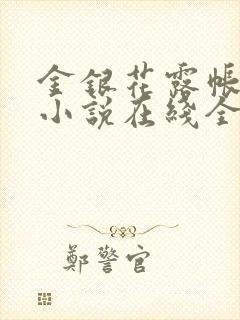 金銀花露帳
小說在綫全
鄭警官